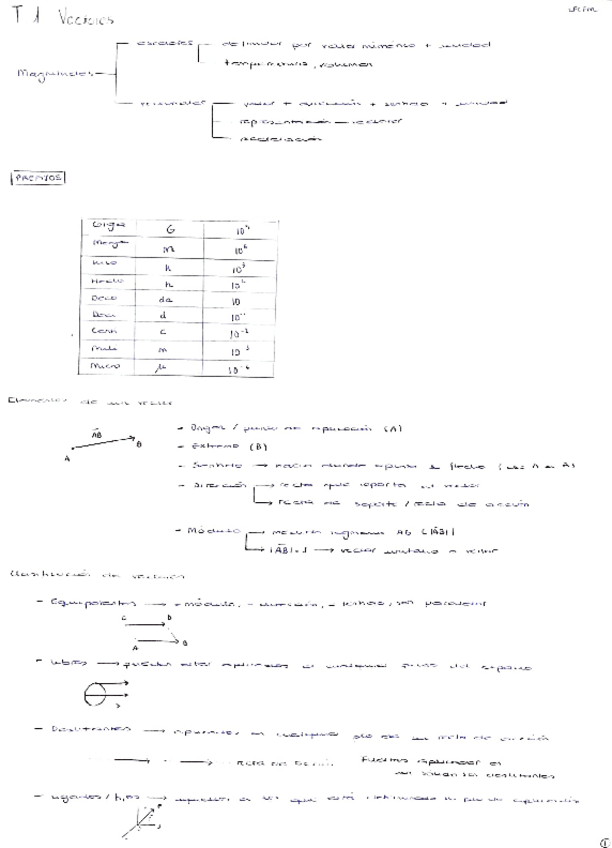 T 1 Vectores
Magnitudes
escalares definidas por valor numérico + unidad
temperatura, volumen
vectoriales valor + dirección + sentido + unidad
representación vector
aceleración
PREFIJOS
Giga G 10⁹
Mega M 10⁶
Kilo k 10³
Hecto h 10²
Deca da 10
Deci d 10⁻¹
Centi c 10⁻²
Mili m 10⁻³
Micro μ 10⁻⁶
Elementos de un vector
AB
A B
- Origen / punto de aplicación (A)
- Extremo (B)
- Sentido → hacia donde apunta la flecha (de A a B)
- Dirección → recta que soporta el vector
→ recta de soporte / recta de acción
- Módulo → segmento AB (|AB|)
→ |AB|=1 → vector unitario o versor
Clasificación de vectores
- Equipolentes → = módulo, = dirección, = sentido, son paralelos
C D
A B
- Libres → pueden estar aplicados en cualquier punto del espacio
- Deslizantes → aplicados en cualquier pto de su recta de acción
recta de acción Fuerzas aplicadas en
un sistema deslizantes
- Ligados / fijos → aquellos en los que está
①